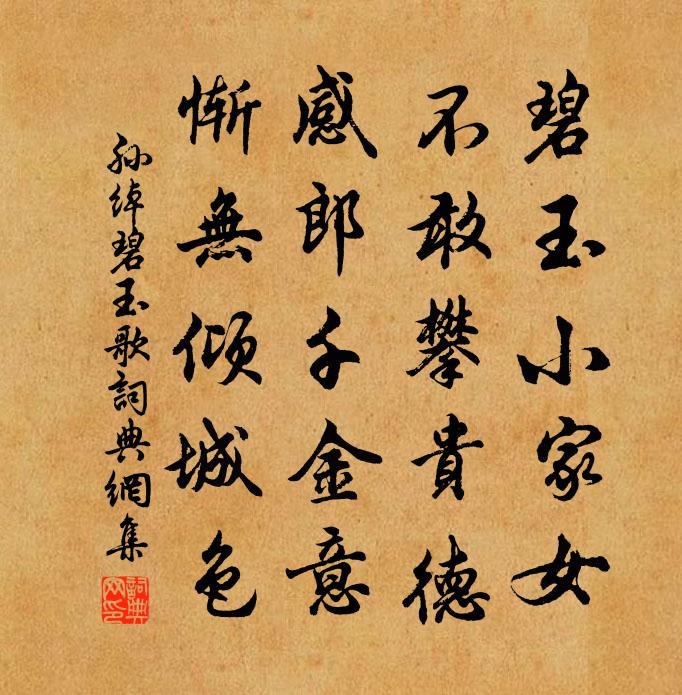 碧玉小家女
不敢攀貴德
感郎千金意
慚無傾城色
孫綽碧玉歌詞典網集
詞典網印